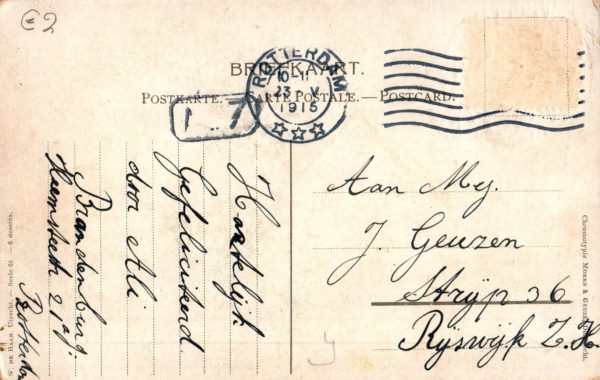 €2
BRIEFKAART.
POSTKARTE. — CARTE POSTALE. — POSTCARD.
ROTTERDAM
23 V
1915
17
Hartelijk
Gefeliciteerd
door Ali
Brandenburg.
21
Rotterdam
Aan Mej.
J. Geuzen
Strijp 36
Rijswijk Z.H.
W. DE HAAN, Utrecht. — Serie 65. — 6 dessins.
Chromotypie